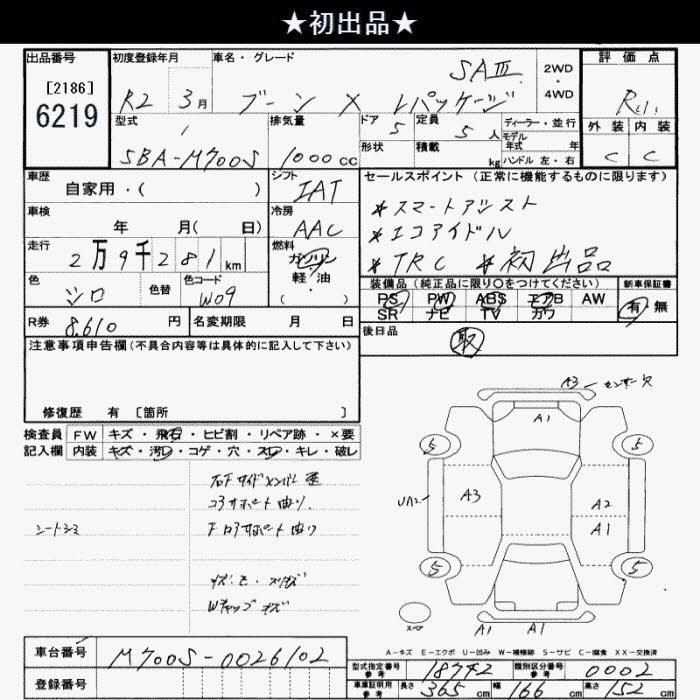 ★初出品★
出品番号
[2186]
6219
初度登録年月
R2 3月
車名・グレード
SAⅢ
ブーン X Lパッケージ
2WD
・
4WD
評価点
外装 内装
C C
型式
5BA-M700S
排気量
1000cc
ドア
5
定員
5人
形状
積載
kg
ディーラー・並行
モデル年式 年
ハンドル 左・右
車歴
自家用・( )
シフト
IAT
セールスポイント(正常に機能するものに限ります)
*スマートアシスト
*エコアイドル
*TRC *初出品
車検
年 月( 日)
冷房
AAC
走行
2万9千281km
燃料
ガソリン
軽・油
( )
色
シロ
色替
色コード
W09
装備品(純正品に限り○をつけてください)
PS PW ABS エアB AW
SR ナビ TV カワ
新車保証書
有 無
R券
8.610円
名変期限 月 日
後日品
取
注意事項申告欄(不具合内容等は具体的に記入して下さい)
修復歴 有 [箇所 ]
検査員
記入欄
FW キズ・飛石・ヒビ割・リペア跡・×要
内装 キズ・汚レ・コゲ・穴・スレ・キレ・破レ
シートシミ
コアサポート曲り
Wキャップキズ
A3
A1
5
5
A3
A2
A1
5
5
スペア
A1
A1
A-キズ E-エクボ U-凹み W-補修跡 S-サビ C-腐食 XX-交換済
車台番号
M700S-0026102
登録番号
型式指定番号
参考
18742
類別区分番号
参考
0002
車庫証明用
参考
長さ 365cm
幅 166cm
高さ 152cm